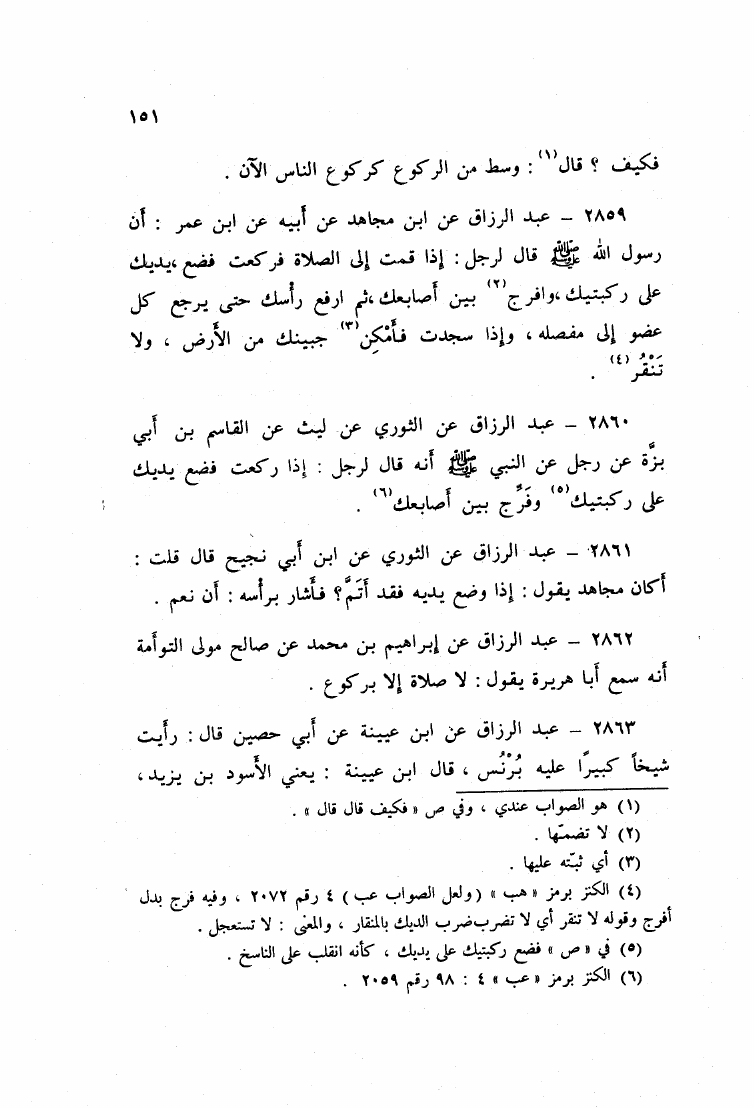 ١٥١
فكيف ؟ قال(١) : وسط من الركوع كركوع الناس الآن .
٢٨٥٩ – عبد الرزاق عن ابن مجاهد عن أبيه عن ابن عمر : أن
رسول الله ﷺ قال لرجل : إذا قمت إلى الصلاة فركعت فضع ،يديك
على ركبتيك ،وافرج(٢) بين أصابعك ،ثم ارفع رأسك حتى يرجع كل
عضو إلى مفصله ، وإذا سجدت فأَمْكِن(٣) جبينك من الأرض ، ولا
تَنْقُر(٤) .
٢٨٦٠ – عبد الرزاق عن الثوري عن ليث عن القاسم بن أبي
بزَّة عن رجل عن النبي ﷺ أنه قال لرجل : إذا ركعت فضع يديك
على ركبتيك(٥) وفَرِّج بين أصابعك(٦) .
٢٨٦١ – عبد الرزاق عن الثوري عن ابن أبي نجيح قال قلت :
أكان مجاهد يقول : إذا وضع يديه فقد أَتَمَّ ؟ فأشار برأسه : أن نعم .
٢٨٦٢ – عبد الرزاق عن إبراهيم بن محمد عن صالح مولى التوأمة
أنه سمع أبا هريرة يقول : لا صلاة إلا بركوع .
٢٨٦٣ – عبد الرزاق عن ابن عيينة عن أبي حصين قال : رأيت
شيخاً كبيرًا عليه بُرْنُس ، قال ابن عيينة : يعني الأسود بن يزيد ،
(١) هو الصواب عندي ، وفي ص « فكيف قال قال » .
(٢) لا تضمّها .
(٣) أي ثبّته عليها .
(٤) الكنز برمز « هب » (ولعل الصواب عب) ٤ رقم ٢٠٧٢ ، وفيه فرج بدل
أفرج وقوله لا تنقر أي لا تضرب ضرب الديك بالمنقار ، والمعنى : لا تستعجل .
(٥) في « ص » فضع ركبتيك على يديك ، كأنه انقلب على الناسخ .
(٦) الكنز برمز « عب » ٤ : ٩٨ رقم ٢٠٥٩ .